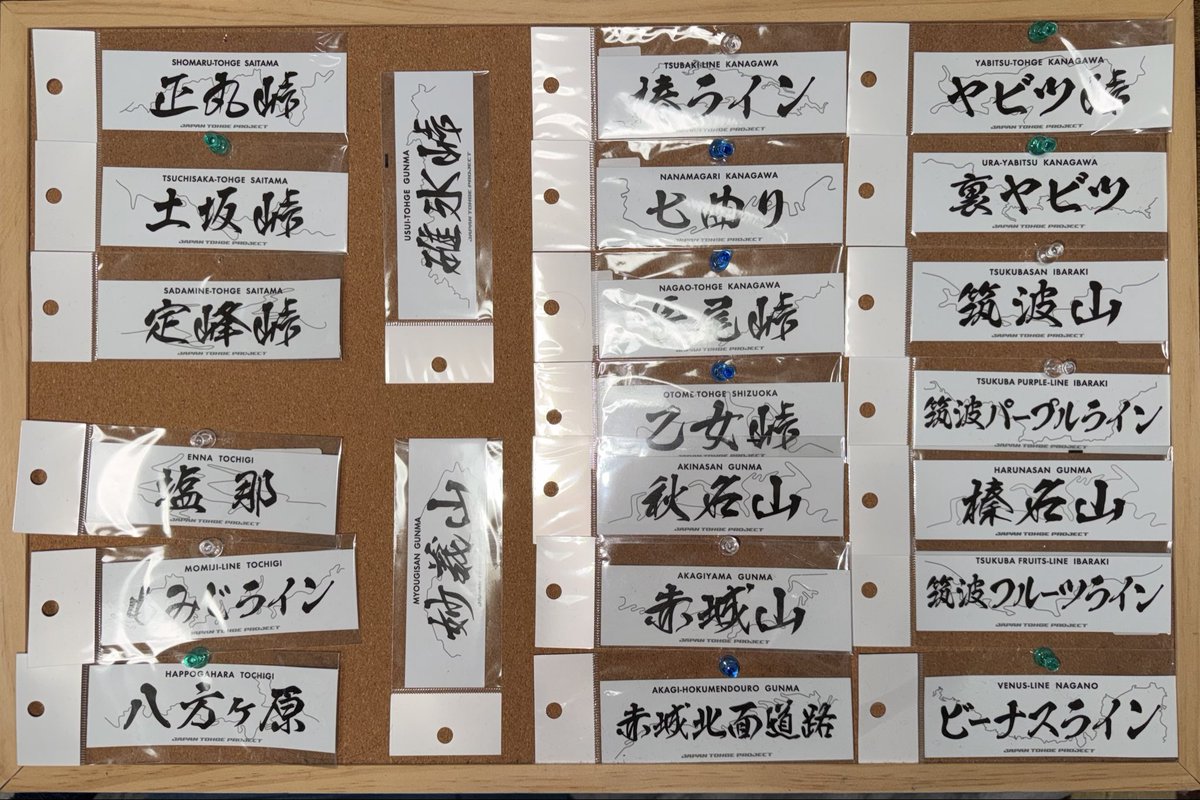 SHOMARU-TOHGE SAITAMA
正丸峠
JAPAN TOHGE PROJECT
TSUCHISAKA-TOHGE SAITAMA
土坂峠
JAPAN TOHGE PROJECT
SADAMINE-TOHGE SAITAMA
定峰峠
JAPAN TOHGE PROJECT
ENNA TOCHIGI
塩那
JAPAN TOHGE PROJECT
MOMIJI-LINE TOCHIGI
もみじライン
JAPAN TOHGE PROJECT
HAPPOGAHARA TOCHIGI
八方ヶ原
JAPAN TOHGE PROJECT
USUI-TOHGE GUNMA
碓氷峠
JAPAN TOHGE PROJECT
MYOUGISAN GUNMA
妙義山
JAPAN TOHGE PROJECT
TSUBAKI-LINE KANAGAWA
椿ライン
JAPAN TOHGE PROJECT
NANAMAGARI KANAGAWA
七曲り
JAPAN TOHGE PROJECT
NAGAO-TOHGE KANAGAWA
長尾峠
JAPAN TOHGE PROJECT
OTOME-TOHGE SHIZUOKA
乙女峠
AKINASAN GUNMA
秋名山
JAPAN TOHGE PROJECT
AKAGIYAMA GUNMA
赤城山
JAPAN TOHGE PROJECT
AKAGI-HOKUMENDOURO GUNMA
赤城北面道路
JAPAN TOHGE PROJECT
YABITSU-TOHGE KANAGAWA
ヤビツ峠
JAPAN TOHGE PROJECT
URA-YABITSU KANAGAWA
裏ヤビツ
JAPAN TOHGE PROJECT
TSUKUBASAN IBARAKI
筑波山
JAPAN TOHGE PROJECT
TSUKUBA PURPLE-LINE IBARAKI
筑波パープルライン
JAPAN TOHGE PROJECT
HARUNASAN GUNMA
榛名山
JAPAN TOHGE PROJECT
TSUKUBA FRUITS-LINE IBARAKI
筑波フルーツライン
JAPAN TOHGE PROJECT
VENUS-LINE NAGANO
ビーナスライン
JAPAN TOHGE PROJECT